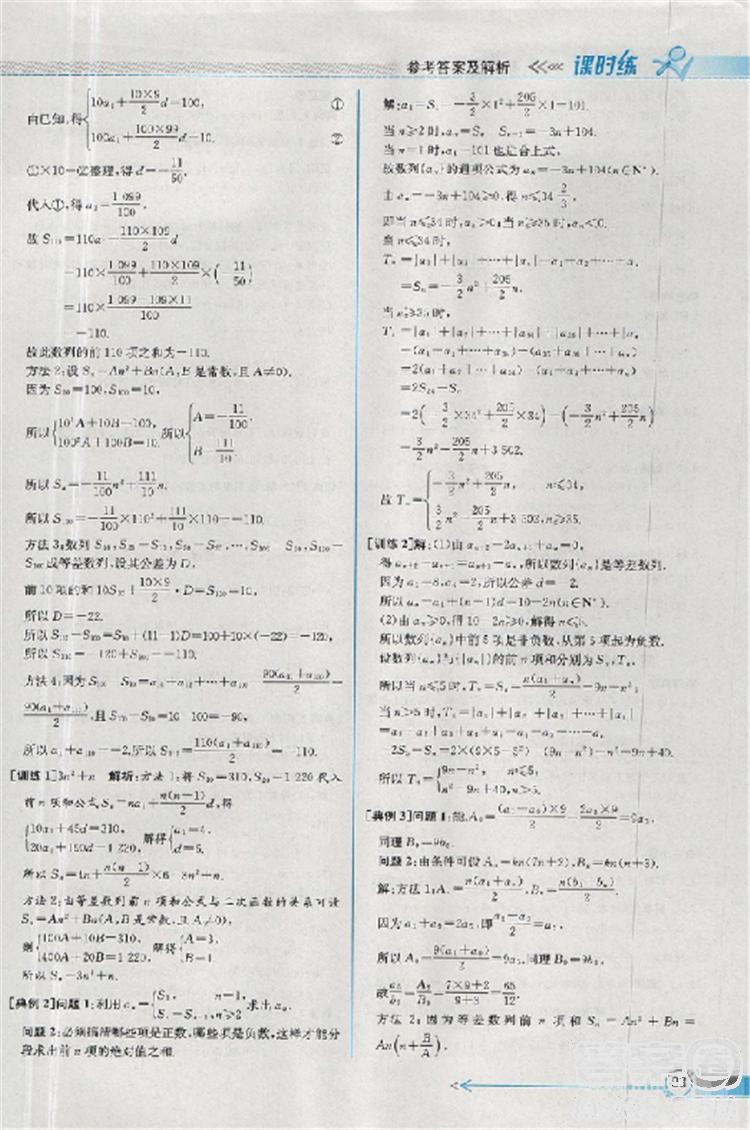 参考答案及解析 课时练
由已知,得{10a₁+10×9/2 d=100, ①
100a₁+100×99/2 d=10. ②
①×10-②整理,得d=-11/50,
代入①,得a₁=1 099/100,
故S₁₁₀=110a₁+110×109/2 d
=110×1 099/100+110×109/2×(-11/50)
=110×(1 099-109×11)/100
=-110.
故此数列的前110项之和为-110.
方法2:设Sₙ=An²+Bn(A,B是常数,且A≠0).
因为S₁₀=100,S₁₀₀=10,
所以{10²A+10B=100, 100²A+100B=10. 所以{A=-11/100, B=111/10.
所以Sₙ=-11/100 n²+111/10 n,
所以S₁₁₀=-11/100×110²+111/10×110=-110.
方法3:数列S₁₀,S₂₀-S₁₀,S₃₀-S₂₀,…,S₁₀₀-S₉₀,S₁₁₀-
S₁₀₀成等差数列,设其公差为D,
前10项的和10S₁₀+10×9/2·D=S₁₀₀=10,
所以D=-22.
所以S₁₁₀-S₁₀₀=S₁₀+(11-1)D=100+10×(-22)=-120,
所以S₁₁₀=-120+S₁₀₀=-110.
方法4:因为S₁₀₀-S₁₀=a₁₁+a₁₂+…+a₁₀₀=90(a₁₁+a₁₀₀)/2=
90(a₁+a₁₁₀)/2,且S₁₀₀-S₁₀=10-100=-90,
所以a₁+a₁₁₀=-2,所以S₁₁₀=110(a₁+a₁₁₀)/2=-110.
[训练1]3n²+n 解析:方法1:将S₁₀=310,S₂₀=1 220代入
前n项和公式Sₙ=na₁+n(n-1)/2 d,得
{10a₁+45d=310, 20a₁+190d=1 220. 解得{a₁=4, d=6.
所以Sₙ=4n+n(n-1)/2×6=3n²+n.
方法2:由等差数列前n项和公式与二次函数的关系可设
Sₙ=An²+Bn(A,B是常数,且A≠0),
则{100A+10B=310, 400A+20B=1 220. 解得{A=3, B=1.
所以Sₙ=3n²+n.
[典例2]问题1:利用aₙ={S₁, n=1, 求出aₙ.
问题2:必须搞清哪些项是正数,哪些项是负数,这样才能分
段求出前n项的绝对值之和.
解:a₁=S₁=-3/2×1²+205/2×1=101.
当n≥2时,aₙ=Sₙ-Sₙ₋₁=-3n+104,
当n=1时,a₁=101也适合上式,
故数列{aₙ}的通项公式为aₙ=-3n+104(n∈N*).
由aₙ=-3n+104≥0,得n≤34 2/3,
即当n≤34时,aₙ>0;当n≥35时,aₙ<0.
当n≤34时,
Tₙ=|a₁|+|a₂|+…+|aₙ|=a₁+a₂+…+aₙ
=Sₙ=-3/2 n²+205/2 n,
当n≥35时,
Tₙ=|a₁|+|a₂|+…+|a₃₄|+|a₃₅|+…+|aₙ|
=(a₁+a₂+…+a₃₄)-(a₃₅+a₃₆+…+aₙ)
=2(a₁+a₂+…+a₃₄)-(a₁+a₂+…+aₙ)
=2S₃₄-Sₙ
=2(-3/2×34²+205/2×34)-(-3/2 n²+205/2 n)
=3/2 n²-205/2 n+3 502.
故Tₙ={-3/2 n²+205/2 n, n≤34,
3/2 n²-205/2 n+3 502,n≥35.
[训练2]解:(1)由aₙ₊₂-2aₙ₊₁+aₙ=0,
得aₙ₊₂-aₙ₊₁=aₙ₊₁-aₙ,所以数列{aₙ}是等差数列.
因为a₁=8,a₄=2,所以公差d=-2,
所以aₙ=a₁+(n-1)d=10-2n(n∈N*).
(2)由aₙ≥0,得10-2n≥0,解得n≤5.
所以数列{aₙ}中前5项是非负数,从第6项起为负数.
设数列{aₙ}与{|aₙ|}的前n项和分别为Sₙ,Tₙ,
所以当n≤5时,Tₙ=Sₙ=n(a₁+aₙ)/2=9n-n²,
当n>5时,Tₙ=|a₁|+|a₂|+…+|a₅|+|a₆|+…+|aₙ|
2S₅-Sₙ=2×(9×5-5²)-(9n-n²)=n²-9n+40.
所以Tₙ={9n-n², n≤5,
n²-9n+40,n>5.
[典例3]问题1:能,A₉=(a₁+a₉)×9/2=2a₅×9/2=9a₅,
同理B₉=9b₅.
问题2:由条件可设Aₙ=kn(7n+2),Bₙ=kn(n+3).
解:方法1:Aₙ=n(a₁+aₙ)/2,Bₙ=n(b₁+bₙ)/2,
因为a₁+a₉=2a₅,即(a₁+a₉)/2=a₅,
所以A₉=9(a₁+a₉)/2=9a₅,同理B₉=9b₅.
故a₅/b₅=A₉/B₉=(7×9+2)/(9+3)=65/12.
方法2:因为等差数列前n项和Sₙ=An²+Bn=
An(n+B/A),